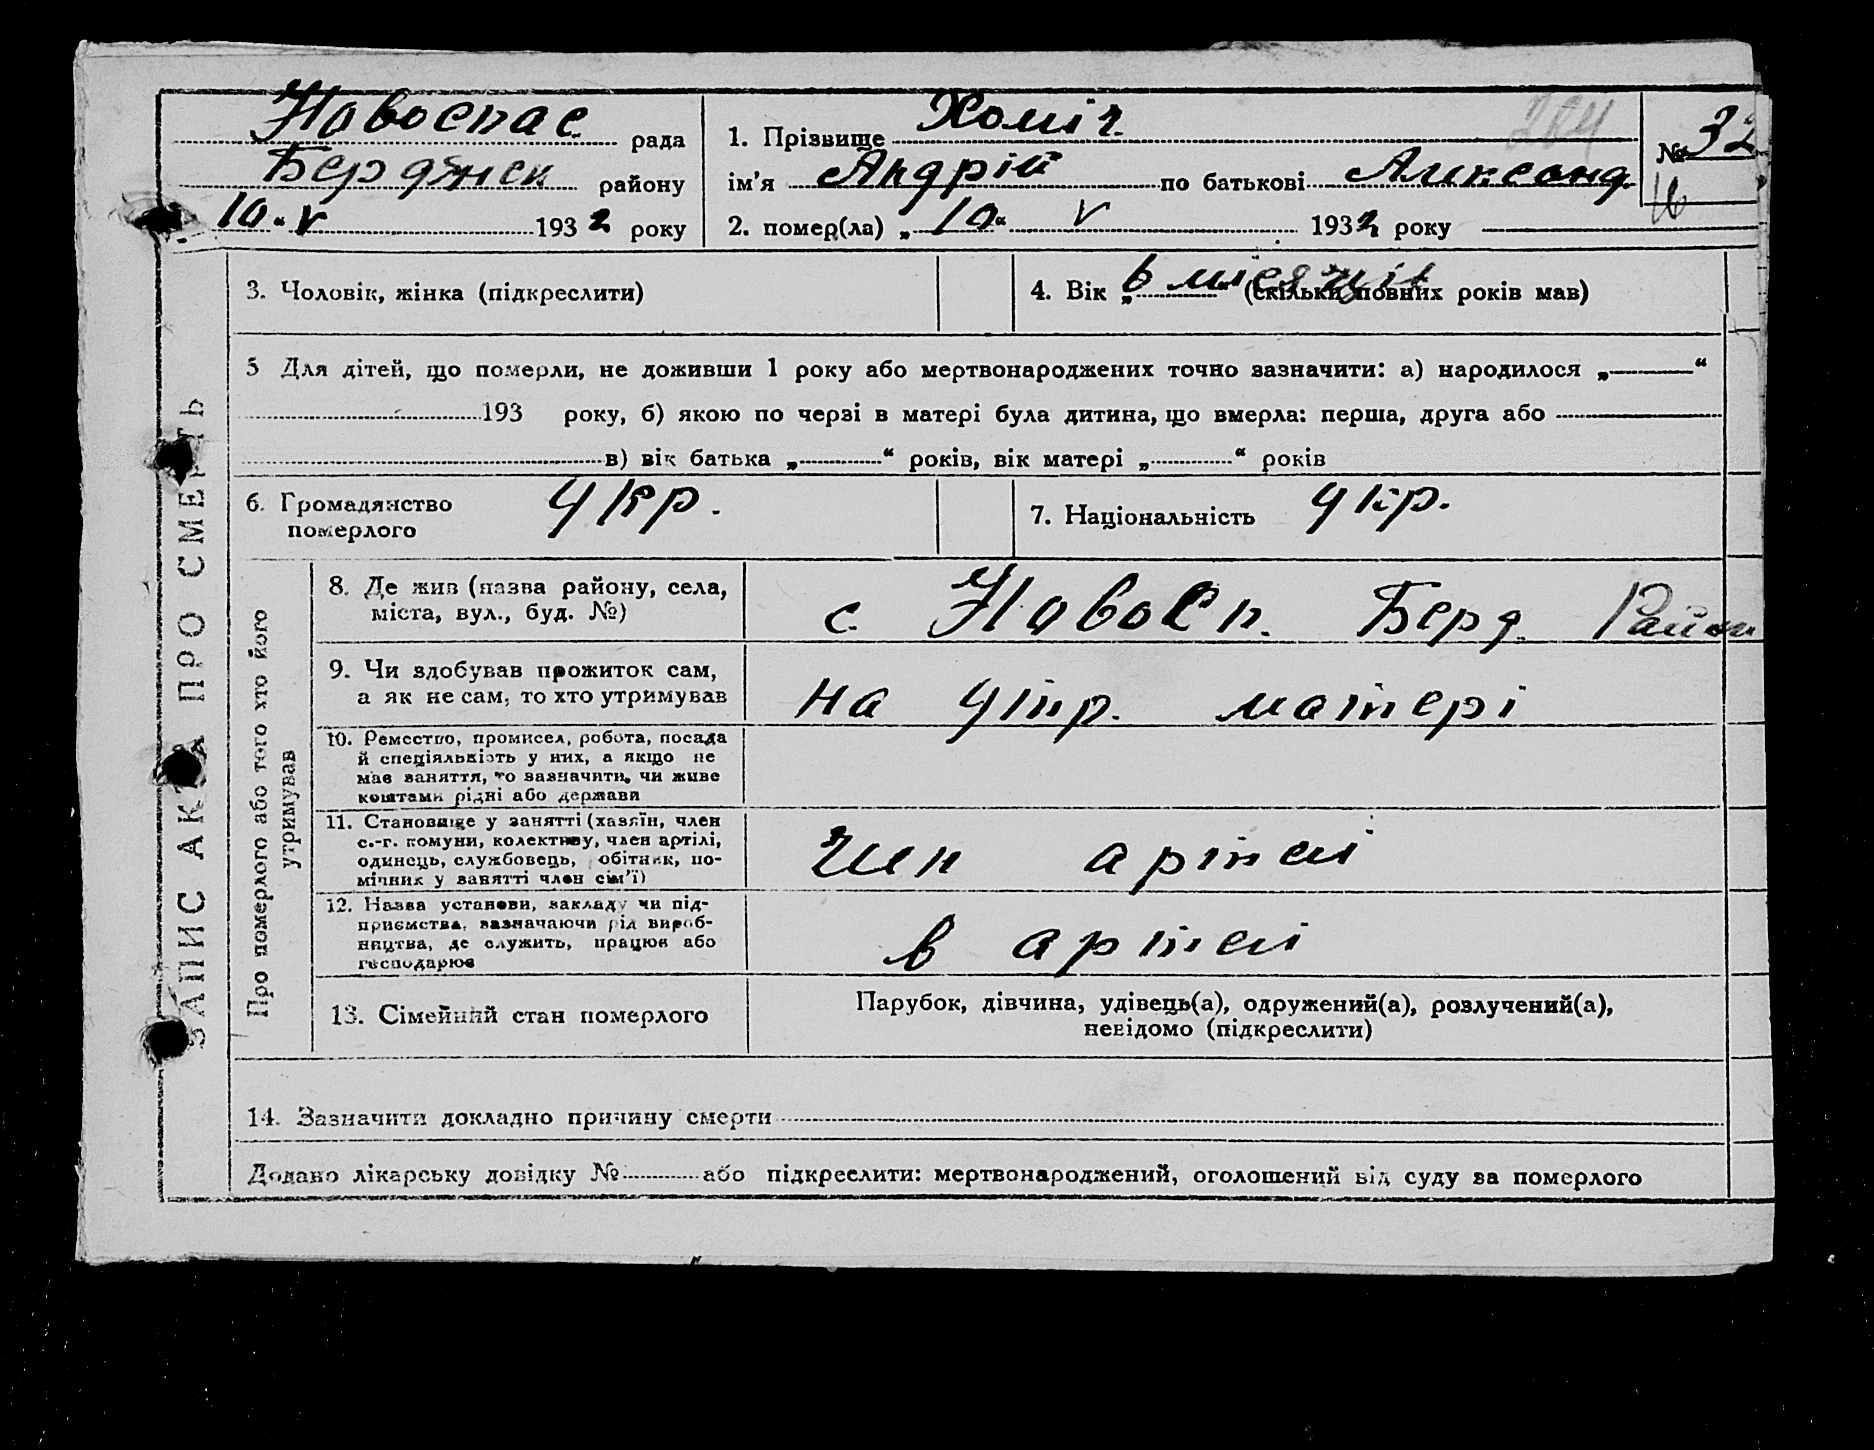 Новоспас. рада
Бердянск району
10 " V 1932 року
1. Прізвище Хоміч
ім'я Андрій по батькові Александ.
2. помер(ла) „ 10 " V 1932 року
284
№ 32
16
3. Чоловік, жінка (підкреслити)
4. Вік „ 6 місяців " (скільки повних років мав)
5 Для дітей, що померли, не доживши 1 року або мертвонароджених точно зазначити: а) народилося „ “
193 року, б) якою по черзі в матері була дитина, що вмерла: перша, друга або
в) вік батька „ “ років, вік матері „ “ років
6. Громадянство
померлого
Укр.
7. Національність Укр.
ЗАПИС АКТА ПРО СМЕРТЬ
Про померлого або того хто його
утримував
8. Де жив (назва району, села,
міста, вул., буд. №)
с. Новосп. Берд. Район
9. Чи здобував прожиток сам,
а як не сам, то хто утримував
на утр. матері
10. Ремество, промисел, робота, посада
й спеціяльність у них, а якщо не
має заняття, то зазначити, чи живе
коштами рідні або держави
11. Становище у занятті (хазяїн, член
с.-г. комуни, колективу, член артілі,
одинець, службовець, обітник, по-
мічник у занятті член сім'ї)
член артелі
12. Назва установи, закладу чи під-
приємства, зазначаючи рід вироб-
ництва, де служить, працює або
господарює
в артелі
13. Сімейний стан померлого
Парубок, дівчина, удівець(а), одружений(а), розлучений(а),
невідомо (підкреслити)
14. Зазначити докладно причину смерти
Додано лікарську довідку № або підкреслити: мертвонароджений, оголошений від суду за померлого